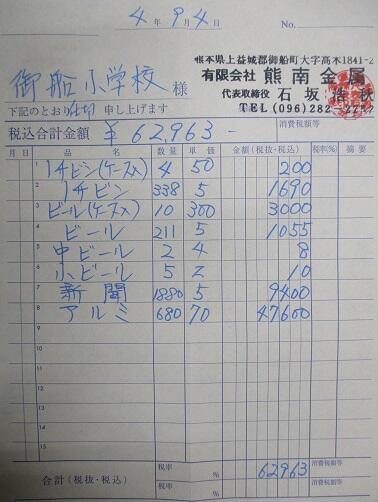 4年9月4日 No.
熊本県上益城郡御船町大字高木1841-2
有限会社 熊南金属
代表取締役 石坂浩秋
TEL (096)282-2252
御船小学校 様
下記のとおり仕切申し上げます
税込合計金額 ¥62,963- 消費税額等
月 日 品名 数量 単価 金額(税抜・税込) 税率(%) 摘要
1 1升ビン(ケース入) 4 50 200
2 1升ビン 338 5 1690
3 ビール(ケース入) 10 300 3000
4 ビール 211 5 1055
5 中ビール 2 4 8
6 小ビール 5 2 10
7 新聞 1880 5 9400
8 アルミ 680 70 47600
9
10
11
12
13
14
15
合計(税抜・税込) 税率 % 消費税額等 62963
税率 % 消費税額等